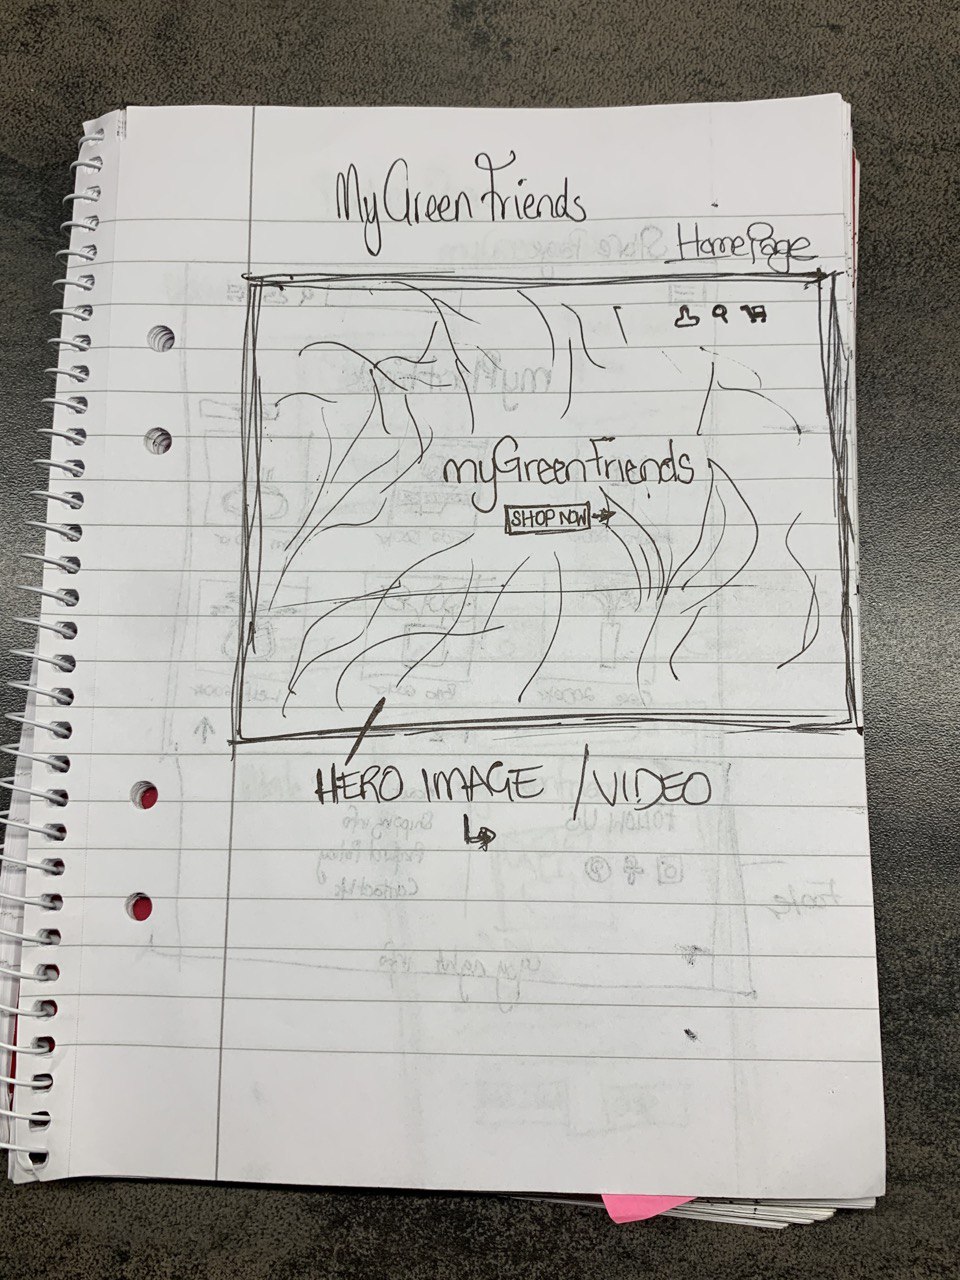 MyGreenFriends
HomePage
myGreenFriends
SHOP NOW
HERO IMAGE / VIDEO